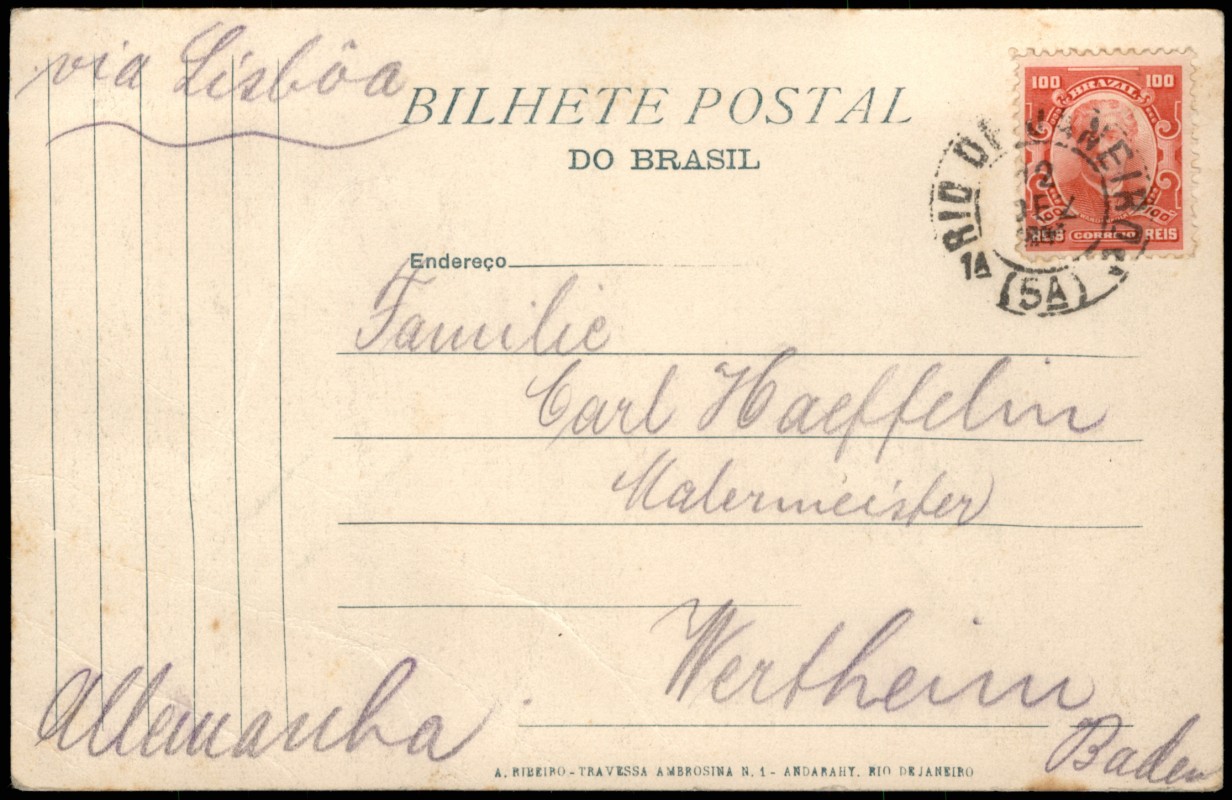 via Lisbôa
BILHETE POSTAL
DO BRASIL
100 100
BRAZIL
100 100
REIS CORREIO REIS
RIO DE JANEIRO
DEZ
1A
(5A)
Endereço
Familie
Carl Haeffelin
Malermeister
Wertheim
Allemanha
Baden
A. RIBEIRO - TRAVESSA AMBROSINA N. 1 - ANDARAHY. RIO DE JANEIRO